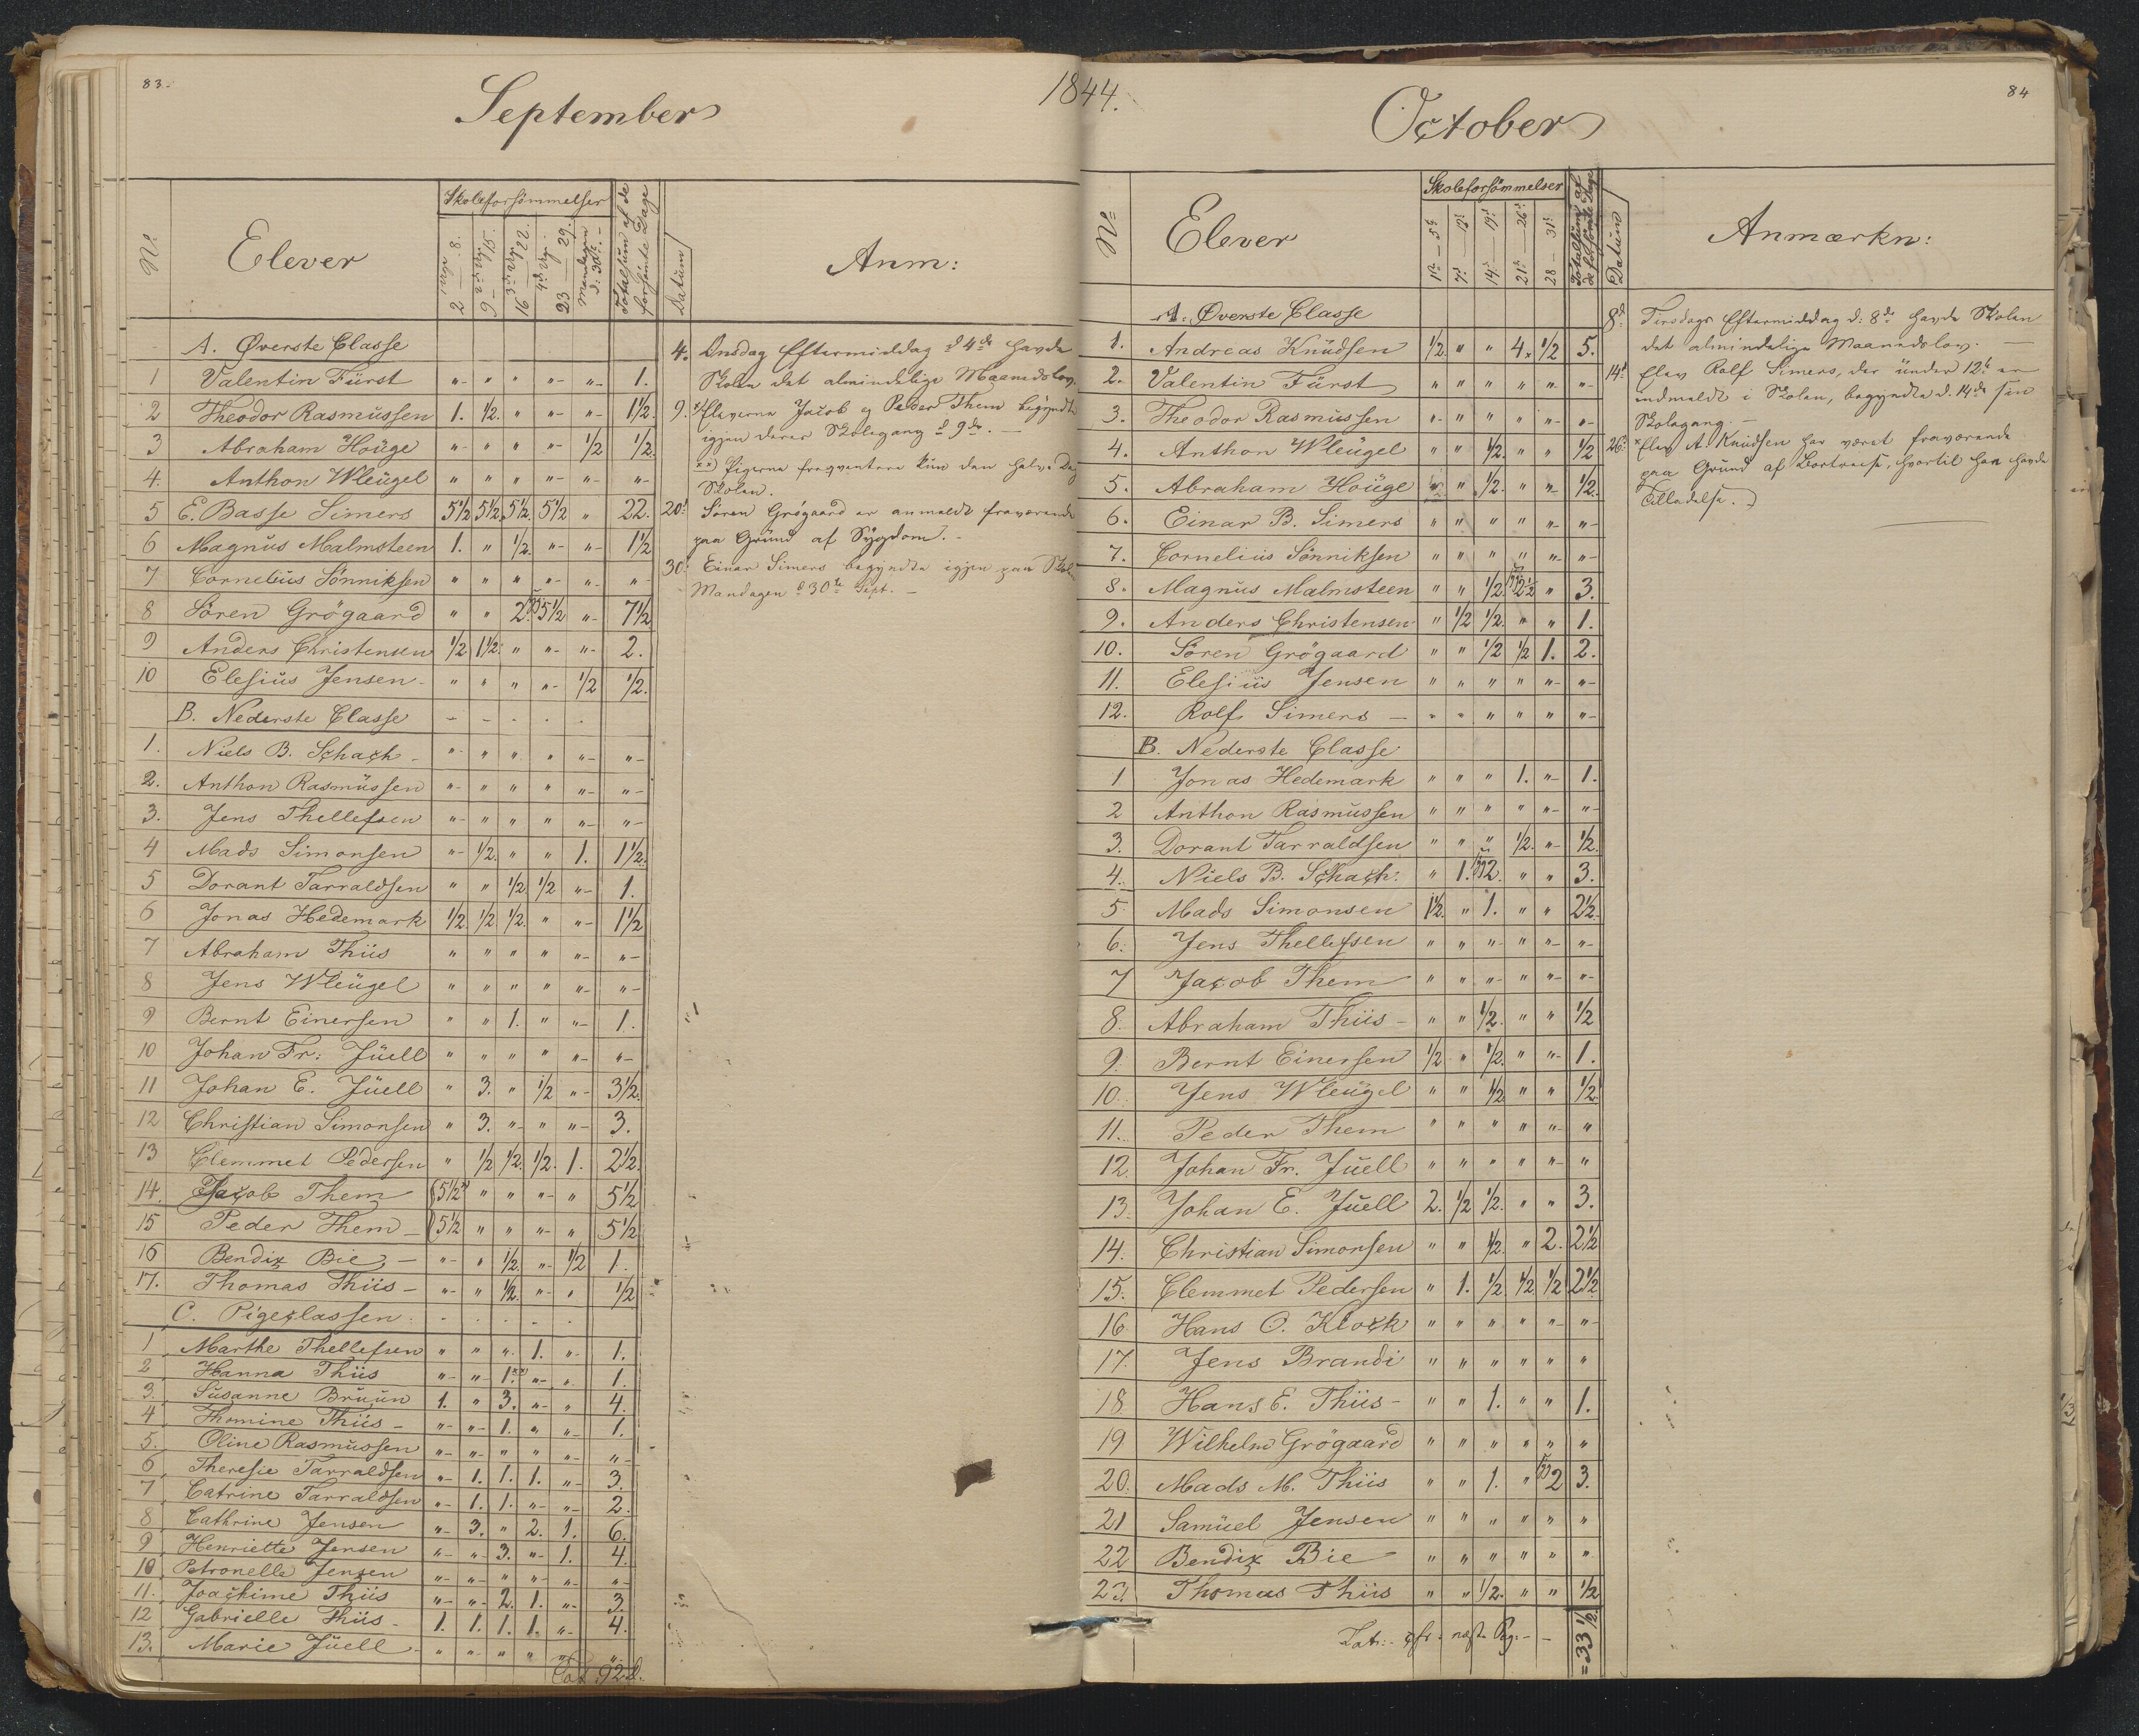 83.
September
1844.
No
Elever
Skoleforsömmelser
Totalsum af de forsömte Dage
Datum
Anm:
2 — 8.
9 — 15.
16 — 22.
23 — 29.
Mandagen d: 30te
A. Øverste Classe
1 Valentin Fürst " " " " " 1.
2 Theodor Rasmüssen 1. 1/2. " " " 1 1/2.
3 Abraham Houge " " " " 1/2 1/2.
4. Anthon Wleügel " " " " " "
5 E. Basse Simers 5 1/2 5 1/2. 5 1/2. 5 1/2 " 22.
6 Magnus Malmsteen 1. " 1/2. " " 1 1/2
7 Cornelius Sönniksen " " " " " "
8 Sören Grögaard " " 2. 5 1/2 " 7 1/2
9 Anders Christensen 1/2 1 1/2. " " " 2.
10 Elesius Jensen " " " " 1/2 1/2.
B. Nederste Classe
1. Niels B. Schach " " " " " "
2. Anthon Rasmüssen " " " " " "
3. Jens Thellefsen " " " " " "
4 Mads Simonsen " 1/2. " " 1. 1 1/2.
5 Dorant Tarraldsen " " 1/2 1/2 " 1.
6 Jonas Hedemark 1/2. 1/2 1/2. " " 1 1/2
7 Abraham Thiis " " " " " "
8 Jens Wleügel " " " " " "
9 Bernt Einersen " " 1. " " 1.
10 Johan Fr: Jüell " " " " " "
11 Johan E. Jüell " 3. " 1/2 " 3 1/2.
12 Christian Simonsen " 3. " " " 3.
13 Clemmet Pedersen " 1/2 1/2. 1/2. 1. 2 1/2.
14. Jacob Them 5 1/2 " " " " 5 1/2
15 Peder Them 5 1/2 " " " " 5 1/2
16 Bendix Bie " " 1/2. " 1/2 1.
17. Thomas Thiis " " 1/2. " " 1/2
C. Pigeclassen.
1 Marthe Thellefsen " " " 1. " 1.
2 Hanna Thiis " " 1.xx) " " 1.
3. Susanne Bruun 1. " 3. " " 4.
4 Thomine Thiis " " 1. " " 1.
5. Oline Rasmüssen " " " " " "
6 Theresie Tarraldsen " 1. 1. 1. " 3.
7 Catrine Tarraldsen " 1. 1. " " 2.
8 Cathrine Jensen " 3. " 2. 1. 6.
9 Henriette Jensen " " 3. " 1. 4.
10 Petronelle Jensen " " " " " "
11. Joachime Thiis " " 2. 1. " 3.
12 Gabrielle Thiis 1. 1. 1. 1. " 4.
13. Marie Jüell " " " " " "
92
4. Onsdag Eftermiddag d 4de havde
Skolen det almindelige Maanedslov.
9. x/ Eleverne Jacob og Peder Them begyndte
igjen deres Skolegang d 9de. —
xx) Pigerne freqventere kün den halve Dag
Skolen.
20. Sören Grögaard er anmeldt fraværende
paa Gründ af Sygdom. –
30. Einar Simers begyndte igjen paa Skolen
Mandagen d 30te Sept. –
84
October
No
Elever
Skoleforsömmelser
Totalsum af de forsömte Dage
Datum
Anmærkn:
1te — 5te
7de — 12te
14de — 19de
21de — 26de
28 — 31te
A. Øverste Classe
1. Andreas Knüdsen 1/2. " " 4x 1/2 5.
2. Valentin Fürst " " " " " "
3. Theodor Rasmüssen " " " " " "
4. Anthon Wleügel " " 1/2. " " 1/2
5. Abraham Houge " " 1/2. " " 1/2.
6. Einar B. Simers " " " " " "
7. Cornelius Sönniksen " " " " " "
8. Magnus Malmsteen " " 1/2. 2 1/2 " 3.
9. Anders Christensen " 1/2 1/2. " " 1.
10. Sören Grögaard " " 1/2 1/2 1. 2.
11. Elesius Jensen " " " " " "
12. Rolf Simers " " " " " "
B. Nederste Classe
1 Jonas Hedemark " " " 1. " 1.
2 Anthon Rasmüssen " " " " " "
3. Dorant Tarraldsen " " " 1/2. " 1/2.
4. Niels B. Schach: " 1. 2. " " 3.
5. Mads Simonsen 1 1/2. " 1. " " 2 1/2.
6. Jens Thellefsen " " " " " "
7 Jacob Them " " " " " "
8. Abraham Thiis " " 1/2. " " 1/2
9. Bernt Einersen 1/2 " 1/2. " " 1.
10. Jens Wleügel " " 1/2 " " 1/2.
11. Peder Them " " " " " "
12. Johan Fr. Jüell " " " " " "
13. Johan E. Jüell 2. 1/2 1/2. " " 3.
14. Christian Simonsen " " 1/2. " 2. 2 1/2
15. Clemmet Pedersen " 1. 1/2. 1/2 1/2 2 1/2
16 Hans O. Klock " " " " " "
17. Jens Brandi " " " " " "
18. Hans E. Thiis " " 1. " " 1.
19 Wilhelm Grögaard " " " " " "
20. Mads M. Thiis " " 1. " 2 3.
21 Samüel Jensen " " " " " "
22 Bendix Bie " " " " " "
23. Thomas Thiis " " 1/2. " " 1/2
næst Pg. = 33 1/2.
8de Tirsdags Eftermiddag d: 8de havde Skolen
det almindelige Maanedslov. —
14de Elev Rolf Simers, der ünder 12te er
indmeldt i Skolen, begyndte d. 14de sin
Skolegang. —
26. x Elev A. Knüdsen har været fraværende
paa Gründ af Bortreise, hvortil han havde
Tilladelse.